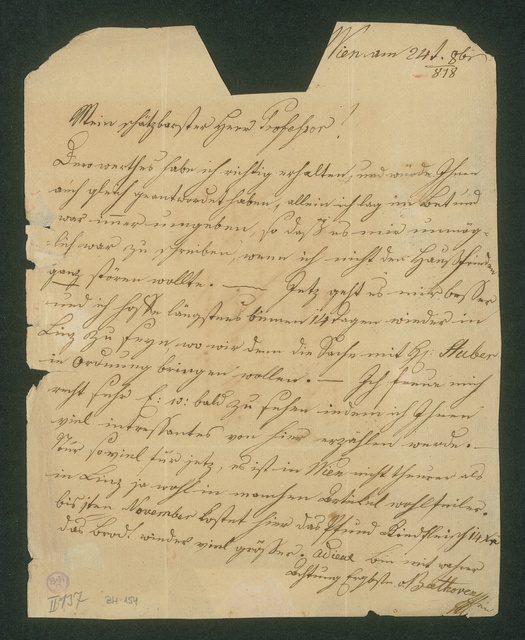 Wien am 24t. 8br
818
Mein schätzbarster Herr Professor!
Dero werthes habe ich richtig erhalten, und würde Ihnen
auch gleich geantwordet haben, allein ich lag im bet und
war immer umgeben, so daß es mir unmög-
lich war zu schreiben, wenn ich nicht den Hausfrieden
ganz stören wollte. — Jetz geht es mir besser
und ich hoffe längstens binnen 14 Tagen wieder in
Linz zu seyn wo wir denn die Sache mit H: Huber
in Ordnung bringen wollen. — Ich freue mich
recht sehr E: w: bald zu sehen indem ich Ihnen
viel intressantes von hier erzählen werde. —
Nur soviel für jetz, es ist in Wien nicht theurer als
in Linz ja wohl in manchen Artikel wohlfeiler.
bis 1ten November kostet hier das Pfund Rindfleisch 14 xr
das Brod wieder viel grösser. Adieu bin mit wahrer
Achtung Ergbster v Beethoven
II 137
BH 154